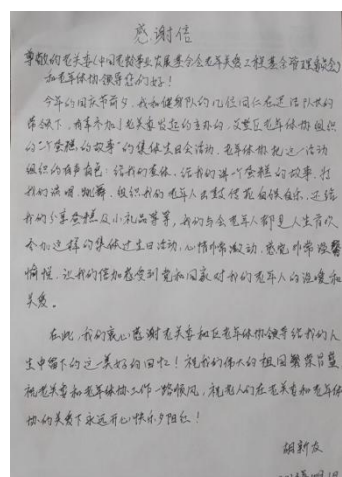 感谢信
尊敬的老关委(中国老龄事业发展基金会老年关爱工程基金管理委员会)
和老年体协领导您们好!
今年的国庆节前夕,我和健身队的几位同仁在队长的
带领下,有幸参加了老关委发起的主办的,区老年体协组织
的"蛋糕的故事"的集体生日会活动,老年体协把这一活动
组织的有声有色:给我们宣传,给我们讲蛋糕的故事,打
我们演唱,跳舞,组织我们老年人自娱自乐,还给
我们分享蛋糕及小礼品等等,我们与会老年人都是人生首次
参加这样的集体过生日活动,心情非常激动,感觉非常温馨
愉悦,让我们倍加感受到党和国家对我们老年人的温暖和
关爱。
在此,我们衷心感谢老关委和区老年体协领导给我们人
生中留下的这一美好的回忆!祝我们伟大的祖国繁荣昌盛
祝老关委和老年体协工作一路顺风,祝老人们在老关委和老年体
协的关爱下永远开心快乐夕阳红!
胡新友